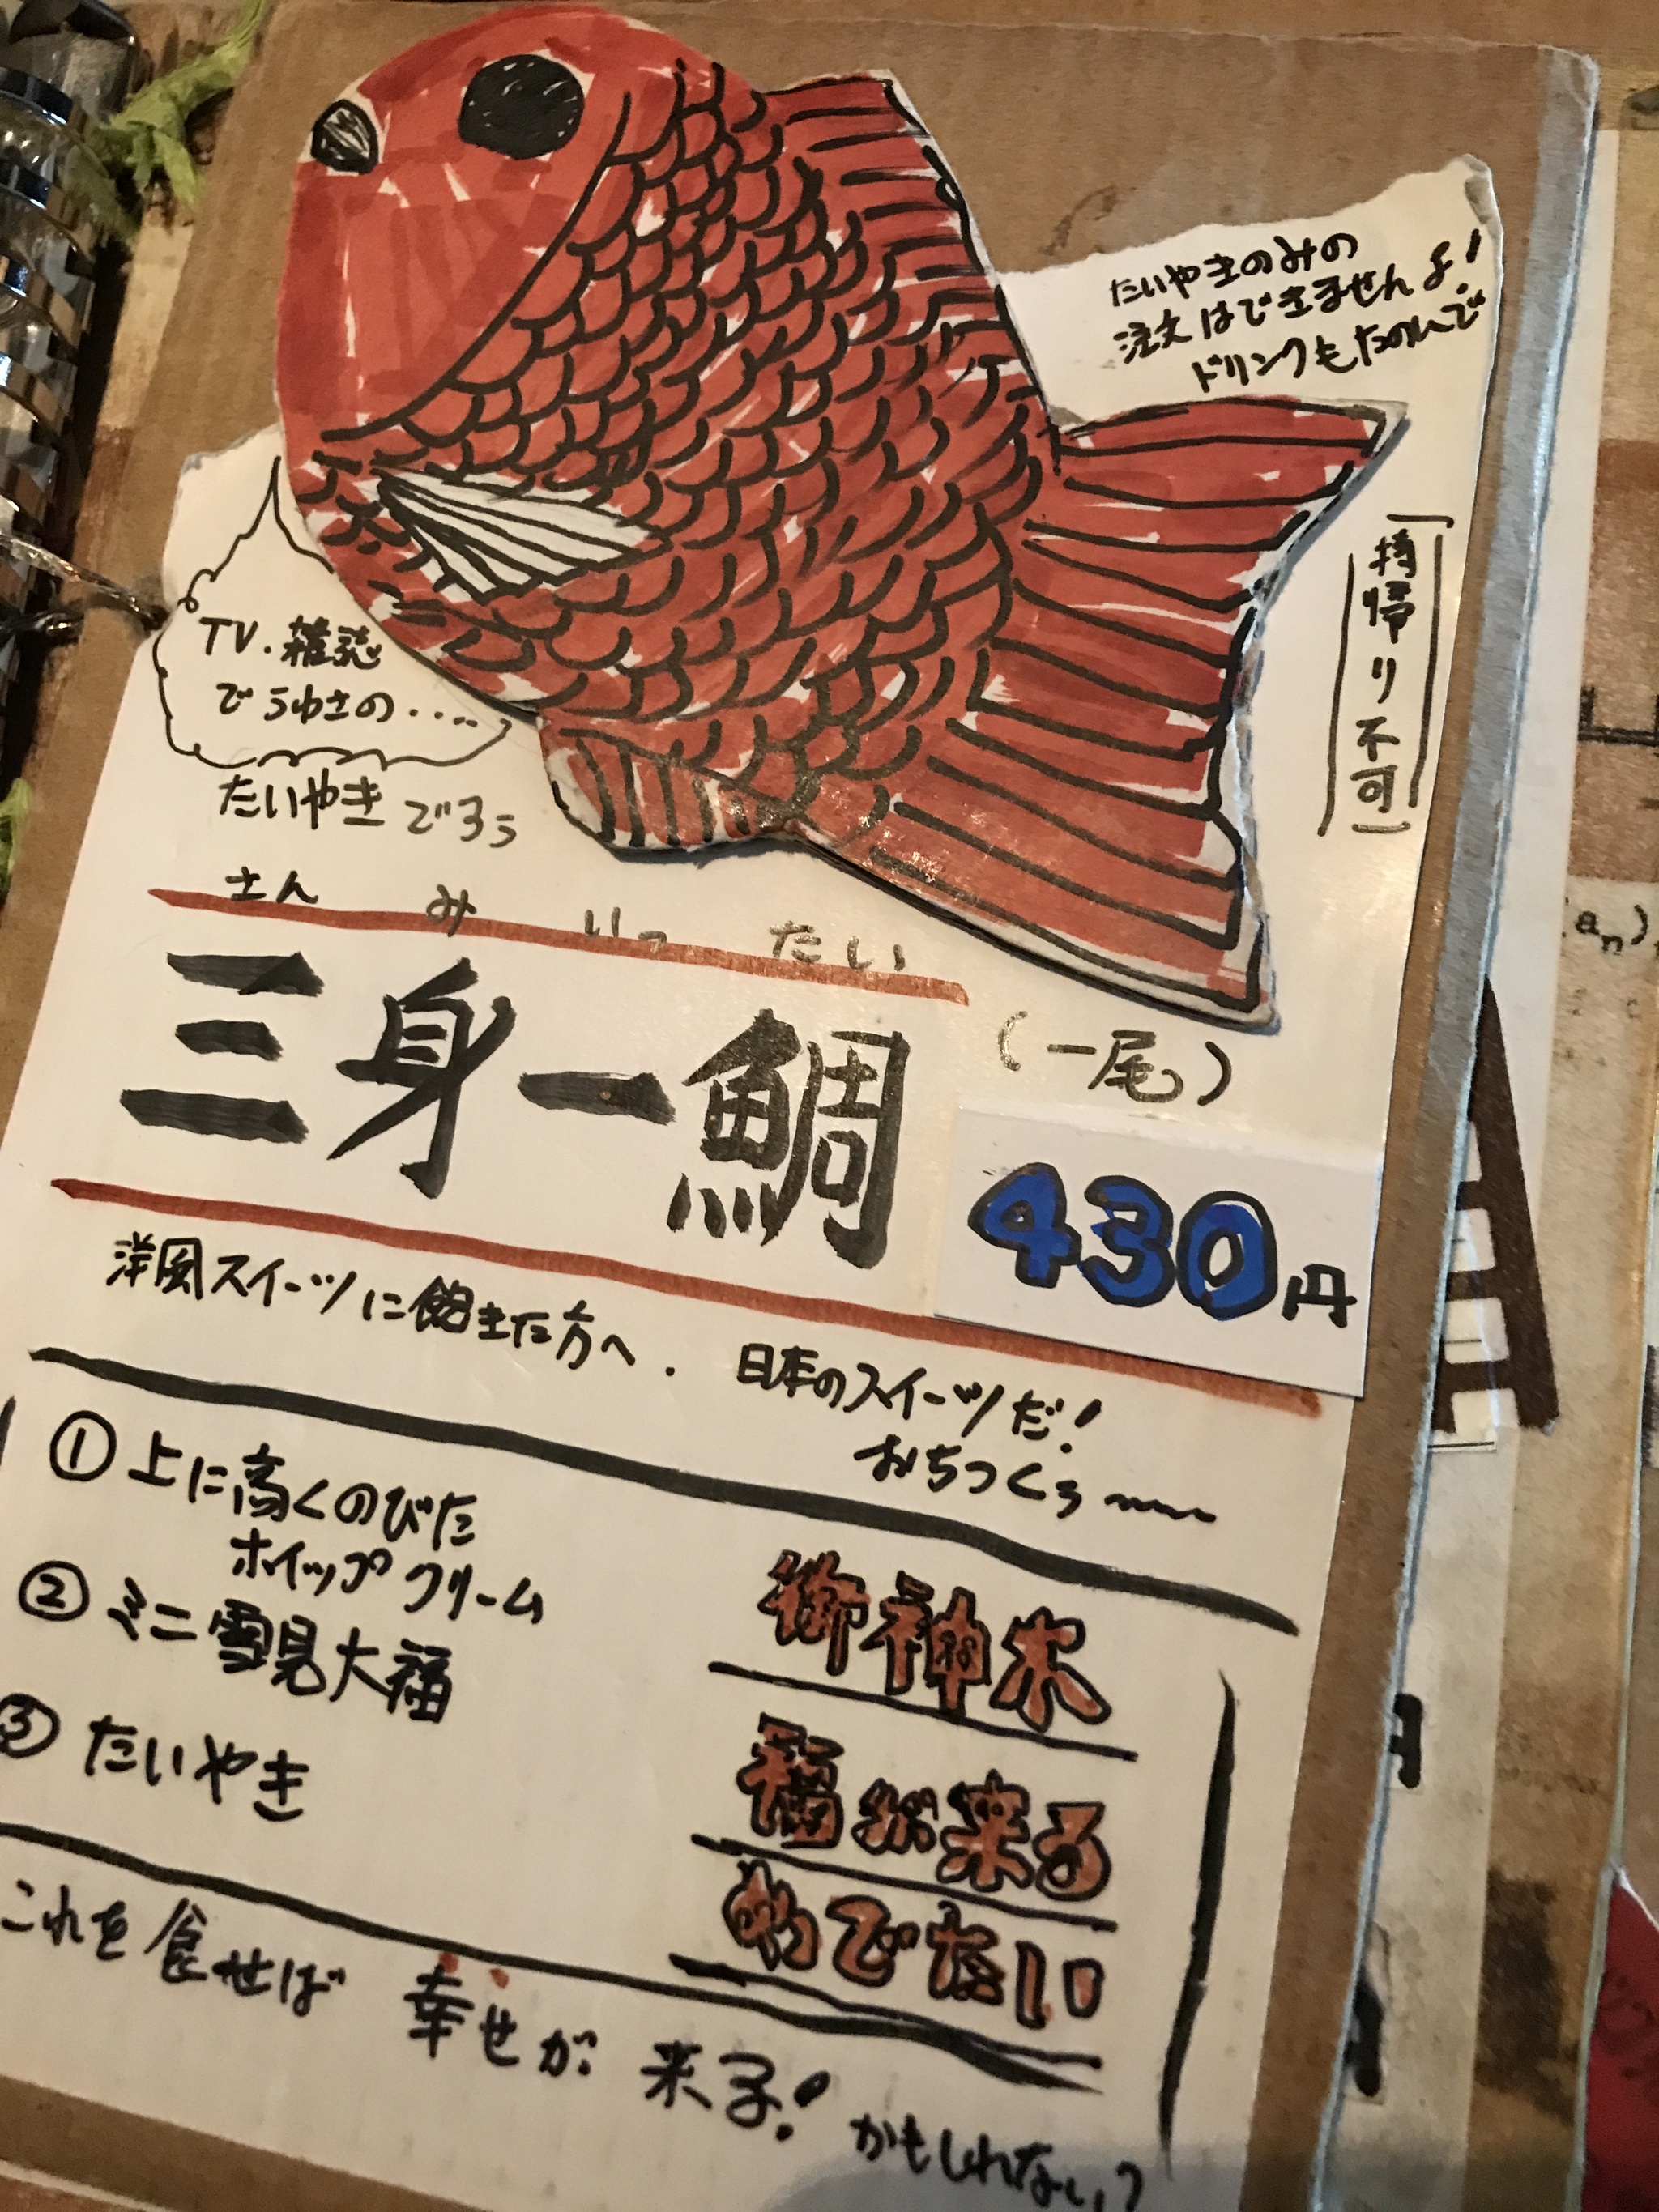 たいやきのみの
注文はできませんよ!
ドリンクもたのんで
持帰り不可
TV.雑誌
でうわさの‥‥
たいやきでろう
さん み いっ たい
三身一鯛
(一尾)
430円
洋風スイーツに飽きた方へ.
日本のスイーツだ!
おちつくぅ〜〜
① 上に高くのびた
ホイップクリーム
御神木
② ミニ雪見大福
福が来る
③ たいやき
めでたい
これを食せば 幸せが 来る! かもしれない?